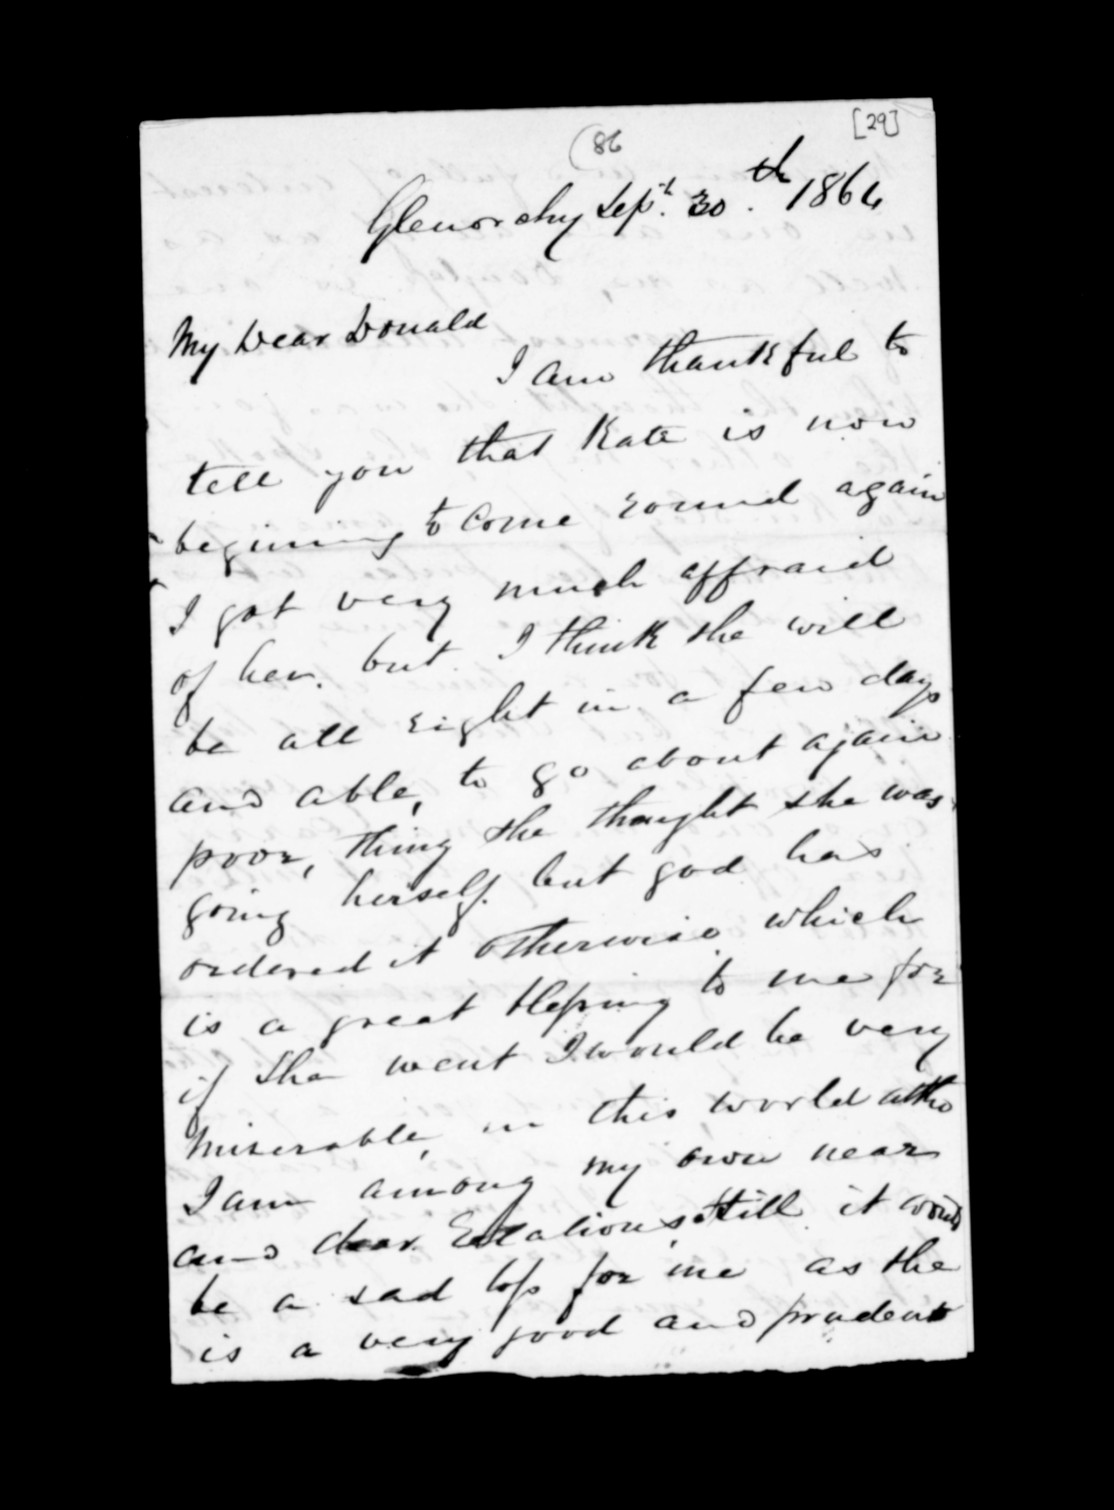 [29]
(86
Glenorchy Sept. 30th. 1864
My Dear Donald
I am thankful to
tell you that Kate is now
beginning to come round again
I got very much affraid
of her. but I think she will
be all right in a few days
and able, to go about again
poor, thing she thought she was
going herself. but god has
ordered it otherwise which
is a great blessing to me for
if she went I would be very
miserable, in this world altho
I am among my own near
and dear Relations, still it would
be a sad loss for me as she
is a very good and prudent